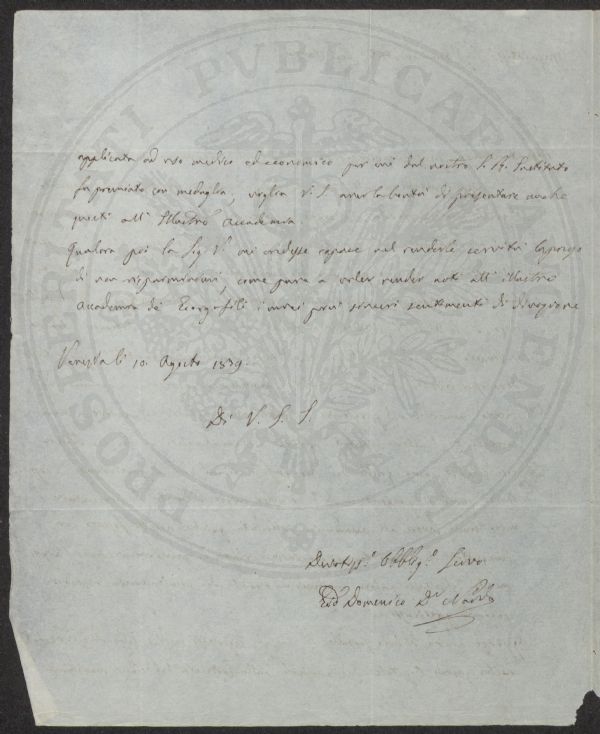 PROSPERITATI PUBLICAE AUGENDAE
applicata ad uso medico ed economico per cui dal nostro I. R. Instituto
fu premiato con medaglia, voglia V. S. aver la bontà di presentare anche
questi all' Illustre Accademia.
Qualora poi la Sig. V. mi credesse capace nel renderle servitù la prego
di non risparmiarmi, come pure a voler render noti all' illustre
Accademia de' Georgofili i miei sinceri sentimenti di divozione
Venezia li 10. Agosto 1839.
Di V. S. I.
Devotiss.o Obblig.o Servo
Domenico D.r Nardo